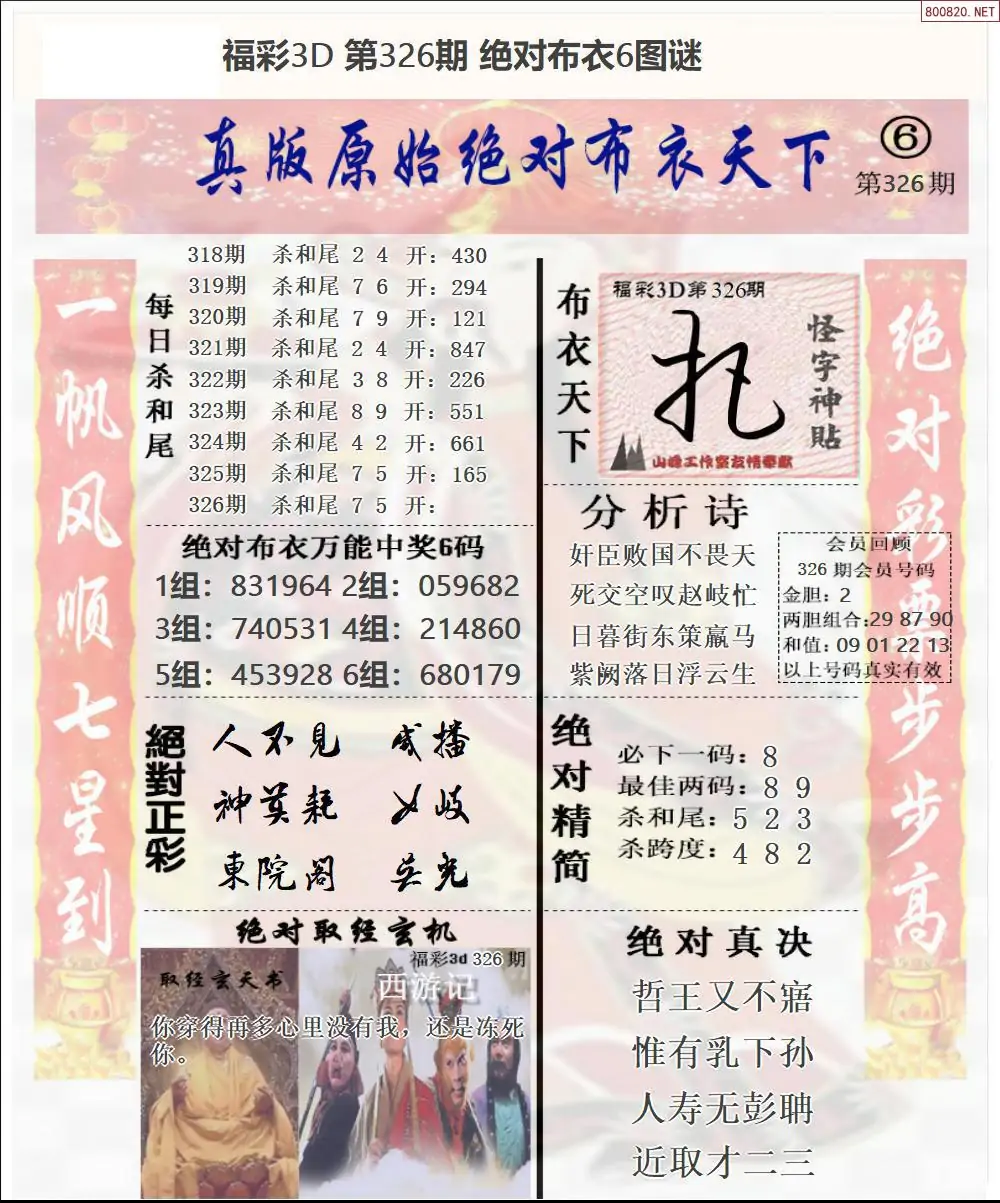 800820.NET
福彩3D 第326期 绝对布衣6图谜
真版原始绝对布衣天下
⑥
第326期
一帆风顺七星到
每日杀和尾
318期 杀和尾 2 4 开：430
319期 杀和尾 7 6 开：294
320期 杀和尾 7 9 开：121
321期 杀和尾 2 4 开：847
322期 杀和尾 3 8 开：226
323期 杀和尾 8 9 开：551
324期 杀和尾 4 2 开：661
325期 杀和尾 7 5 开：165
326期 杀和尾 7 5 开：
绝对布衣万能中奖6码
1组：831964 2组：059682
3组：740531 4组：214860
5组：453928 6组：680179
絕對正彩
人不見
神莫耗
東院阁
绝对取经玄机
福彩3d 326期
取经玄天书
西游记
你穿得再多心里没有我，还是冻死
你。
布衣天下
福彩3D第326期
怪字神贴
山峰工作室友情奉献
分析诗
奸臣败国不畏天
死交空叹赵岐忙
日暮街东策羸马
紫阙落日浮云生
会员回顾
326 期会员号码
金胆：2
两胆组合:29 87 90
和值：09 01 22 13
以上号码真实有效
绝对精简
必下一码：8
最佳两码：8 9
杀和尾：5 2 3
杀跨度：4 8 2
绝对真决
哲王又不寤
惟有乳下孙
人寿无彭聃
近取才二三
绝对彩票步步高